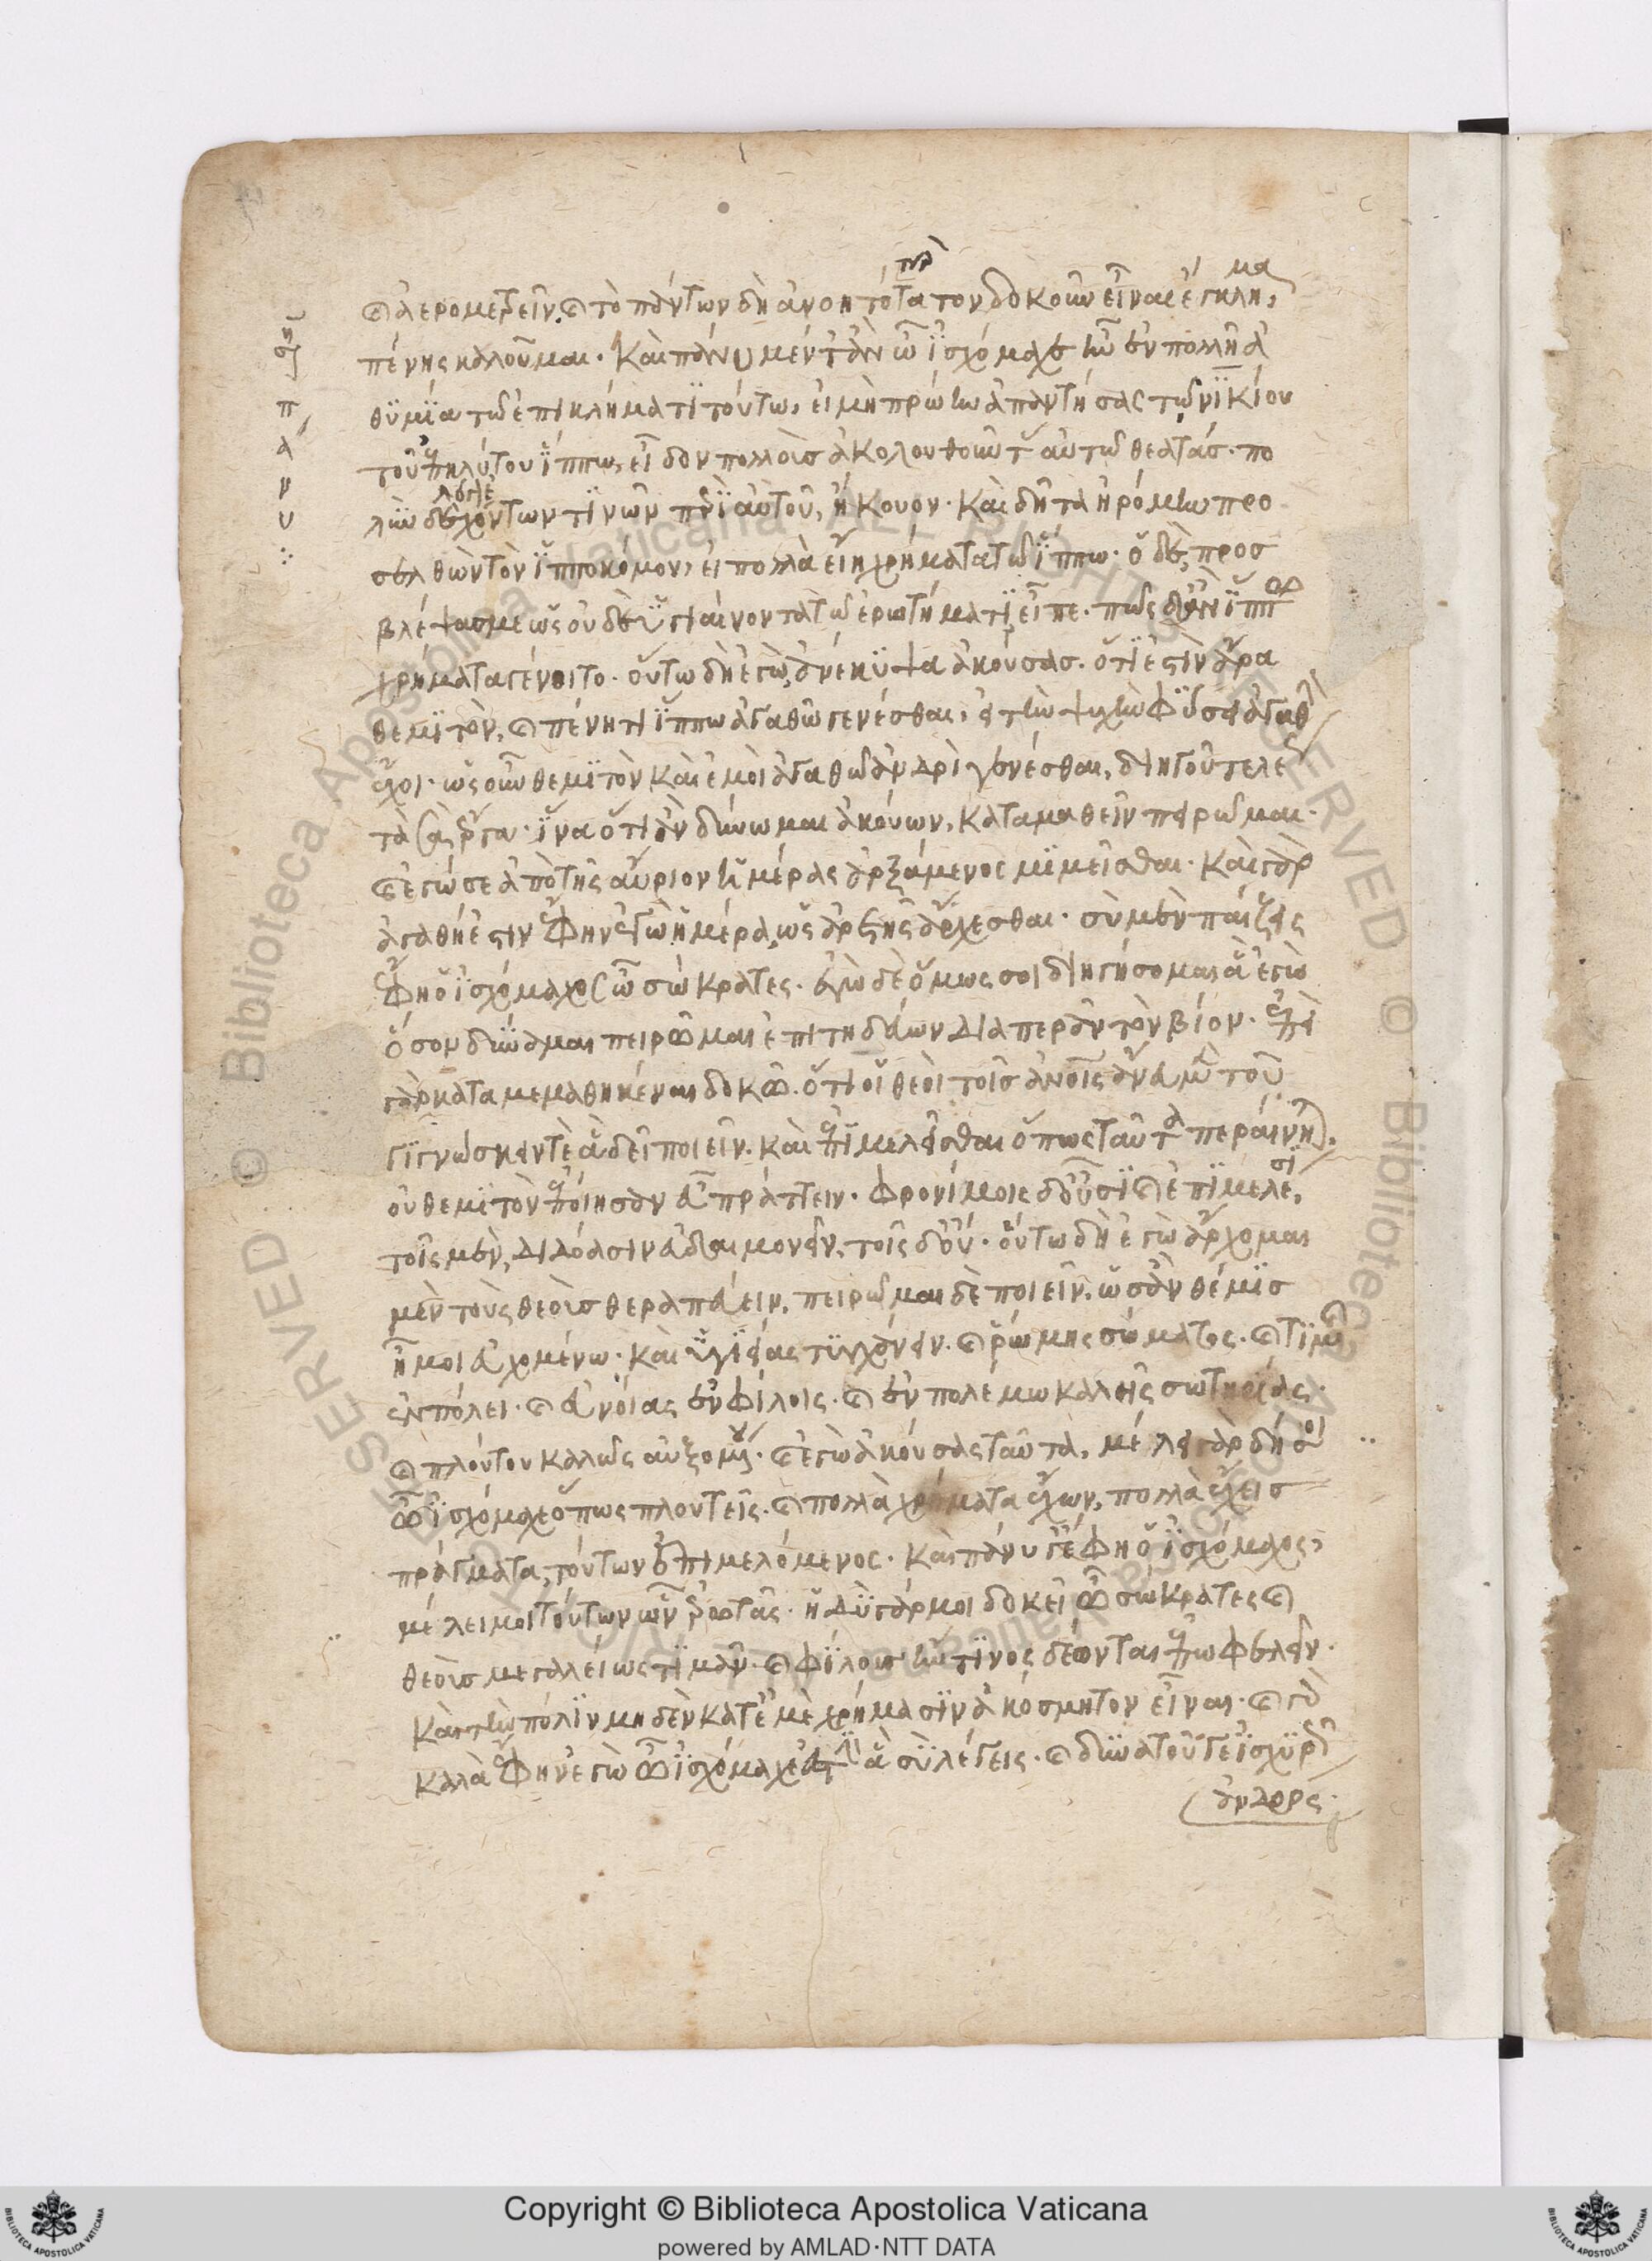 καὶ ἀερομετρεῖν. καὶ τὸ πάντων δὴ ἀνοητότατον δοκοῦν εἶναι ἔγκλημα
πένης καλοῦμαι. Καὶ πάνυ μέν τ' ἂν ὦ ἰσχόμαχε ἦν ἐν πολλῆ ἀ
θυμία τῶ ἐπικλήματι τούτω, εἰ μὴ πρώην ἀπαντήσας τῶ νικίου
τοῦ ἐπηλύτου ἵππω, εἶδον πολλοὺς ἀκολουθοῦντας αὐτῶ θεατάς. πο
λὺν δὲ λόγον ἐχόντων τινῶν περὶ αὐτοῦ, ἤκουον. Καὶ δῆτα ἠρόμην προ
σελθὼν τὸν ἱπποκόμον, εἰ πολλὰ εἴη χρήματα τῶ ἵππω. ὁ δὲ, προσ
βλέψας με ὡς οὐδὲ ὑγιαίνοντα τῶ ἐρωτήματι, εἶπε. πῶς δ' ἂν ἵππω
χρήματα γένοιτο. οὕτω δὴ ἐγὼ, ἀνέκυψα ἀκούσας. ὅτι ἐστὶν ἄρα
θεμιτὸν, καὶ πένητι ἵππω ἀγαθῶ γενέσθαι, εἰ τὴν ψυχὴν φύσει ἀγαθὴν
ἔχοι. ὡς οὖν θεμιτὸν καὶ ἐμοὶ ἀγαθῶ ἀνδρὶ γενέσθαι, διηγοῦ τελέως
τὰ σὰ ἔργα. ἵνα ὅτι ἂν δύνωμαι ἀκούων, καταμαθεῖν πειρῶμαι.
καὶ ἐγώ σε ἀπὸ τῆς αὔριον ἡμέρας ἀρξάμενος μιμεῖσθαι. Καὶ γὰρ
ἀγαθή ἐστιν ἔφην ἐγὼ ἡμέρα, ὡς ἀρετῆς ἄρχεσθαι. σὺ μὲν παίζεις
ἔφη ὁ ἰσχόμαχος ὦ σώκρατες. ἐγὼ δὲ ὅμως σοι διηγήσομαι ἃ ἐγὼ
ὅσον δύναμαι πειρῶμαι ἐπιτηδεύων διαπερᾶν τὸν βίον. ἐπεὶ
γὰρ καταμεμαθηκέναι δοκῶ. ὅτι οἱ θεοὶ τοῖς ἀνοις ἄνευ μὲν τοῦ
γιγνώσκειν τὲ ἃ δεῖ ποιεῖν. καὶ ἐπιμελεῖσθαι ὅπως ταῦτα περαίνηται,
οὐ θεμιτὸν ἐποίησαν εὖ πράττειν. φρονίμοις δ' οὖσι καὶ ἐπιμελέσι,
τοῖς μὲν, διδόασιν εὐδαιμονεῖν, τοῖς δ' οὔ. οὕτω δὴ ἐγὼ ἄρχομαι
μὲν τοὺς θεοὺς θεραπεύειν, πειρῶμαι δὲ ποιεῖν, ὡς ἂν θέμις
ἦ μοι εὐχομένω. καὶ ὑγιείας τυγχάνειν. καὶ ῥώμης σώματος. καὶ τιμῆς
ἐν πόλει. καὶ εὐνοίας ἐν φίλοις. καὶ ἐν πολέμω καλῆς σωτηρίας.
καὶ πλούτου καλῶς αὐξομένου. καὶ ἐγὼ ἀκούσας ταῦτα, μέλει γὰρ δή σοι
ὦ ἰσχόμαχε ὅπως πλουτεῖς. καὶ πολλὰ χρήματα ἔχων, πολλὰ ἔχεις
πράγματα, τούτων ἐπιμελόμενος. Καὶ πάνυ γ' ἔφη ὁ ἰσχόμαχος,
μέλει μοι τούτων ὧν ἐρωτᾶς. ἡδὺ γάρ μοι δοκεῖ ὦ σώκρατες καὶ
θεοὺς μεγαλείως τιμᾶν. καὶ φίλους ἤν τινος δέωνται ἐπωφελεῖν.
Καὶ τὴν πόλιν μηδὲν κατ' ἐμὲ χρήμασιν ἀκόσμητον εἶναι. καὶ γὰρ
καλὰ ἔφην ἐγὼ ὦ ἰσχόμαχε ἐστὶν ἃ σὺ λέγεις. καὶ δυνατοῦ γε ἰσχυρῶς
ἀνδρός.